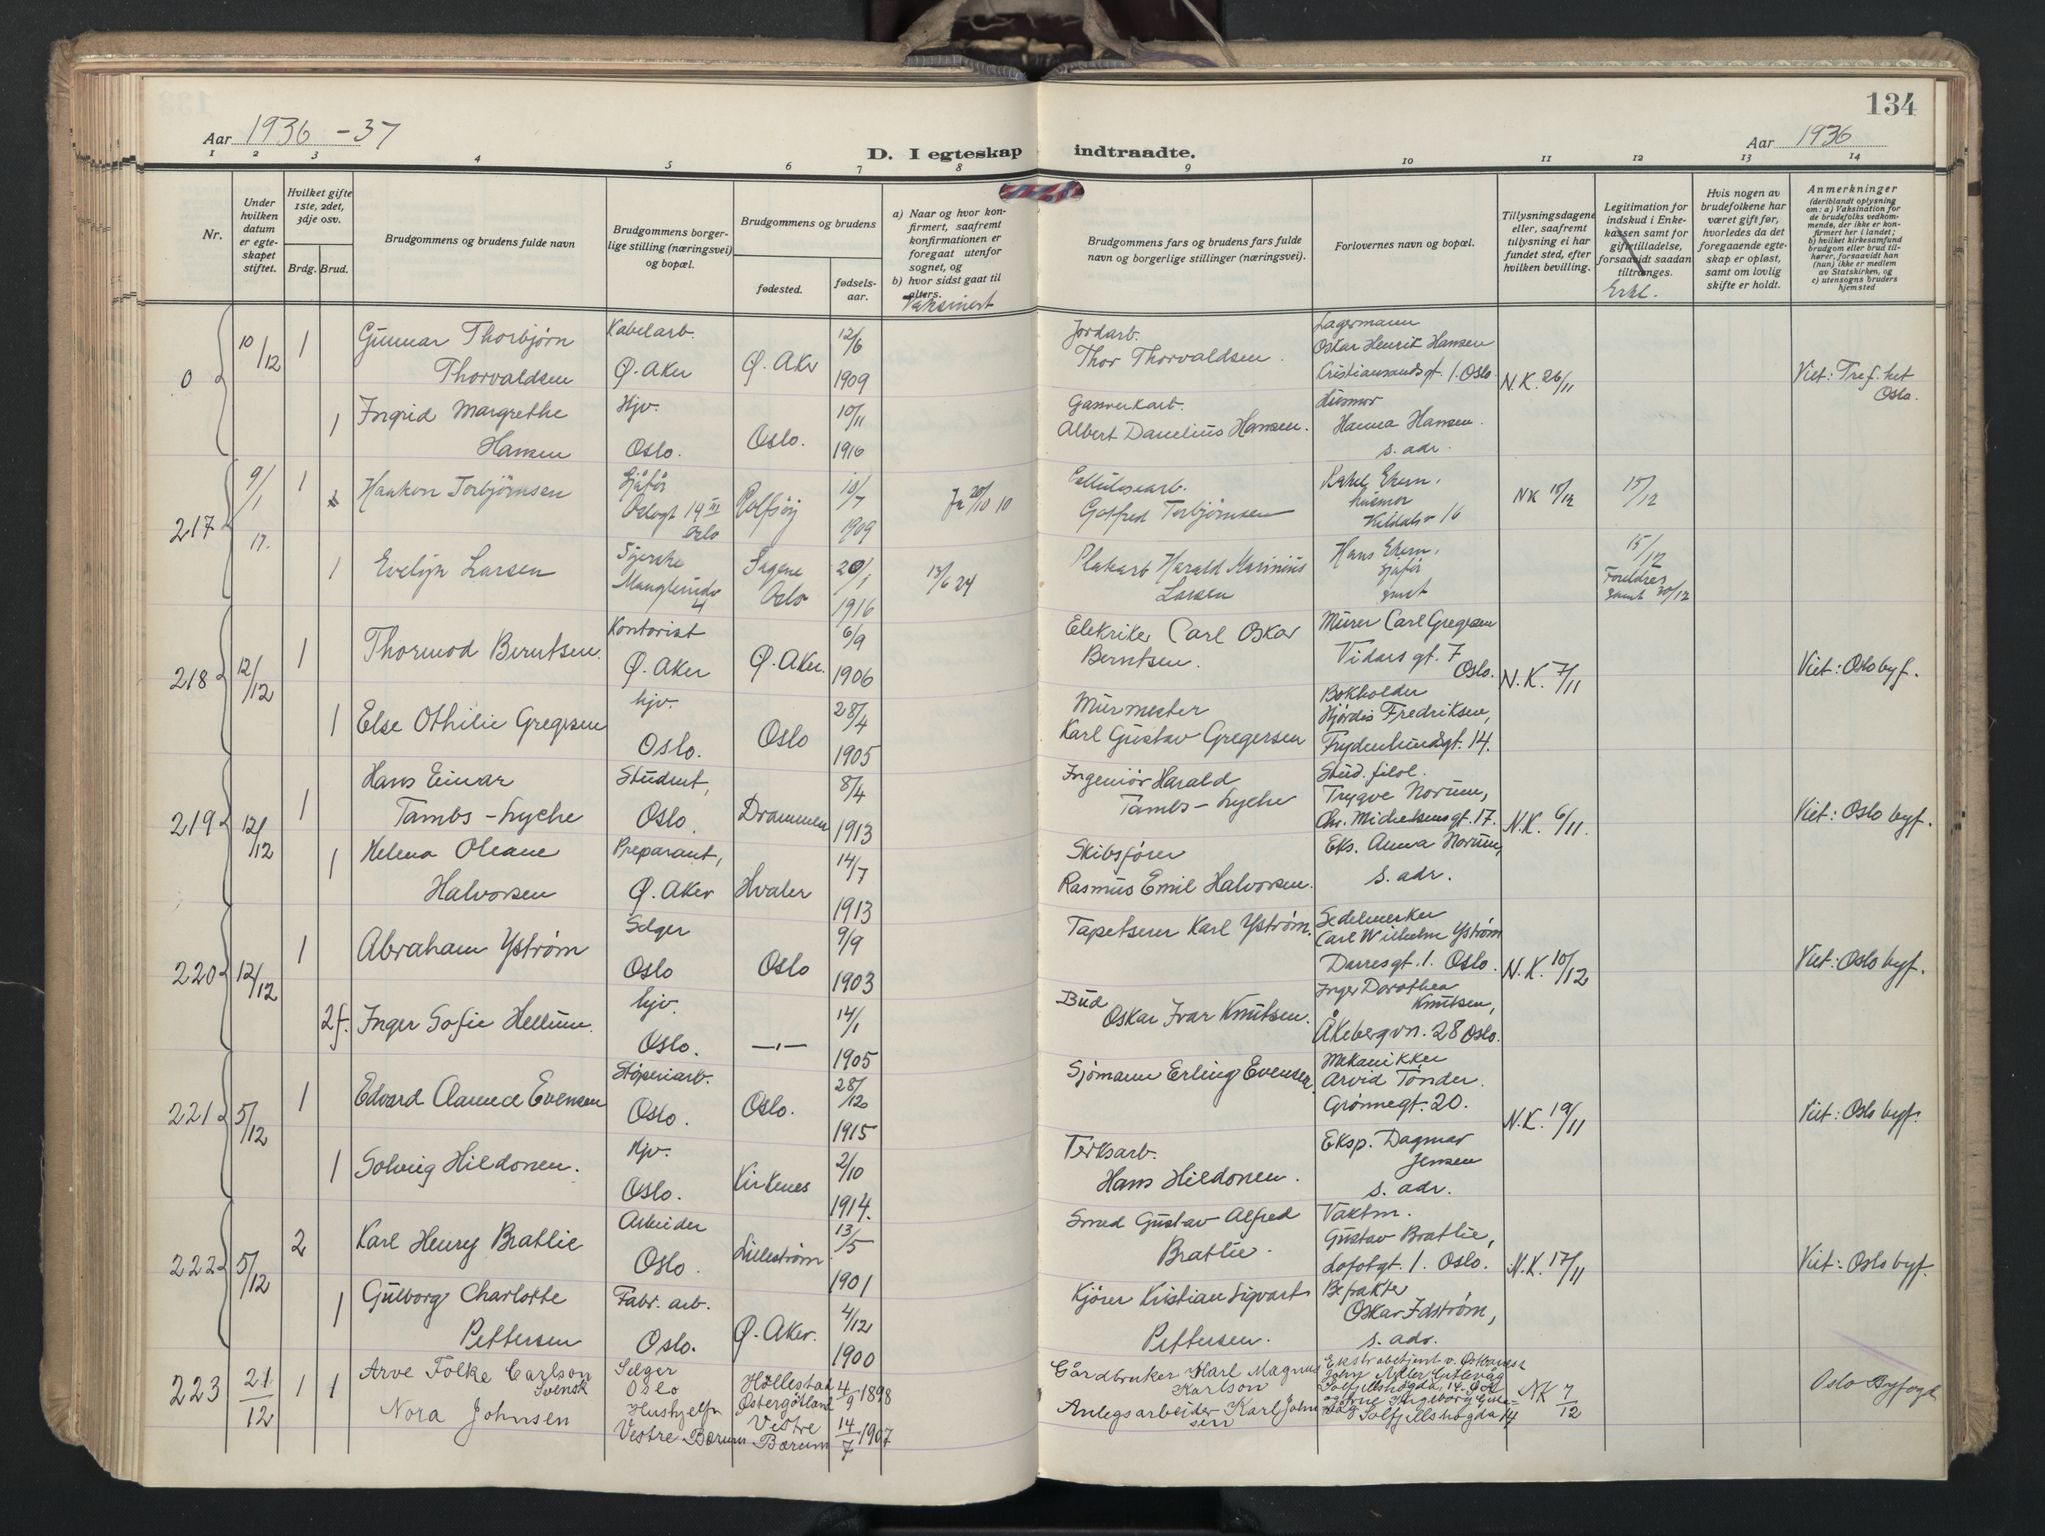 134
Aar 1936 - 37
D. I egteskap indtraadte.
Aar 1936
1 2 3 4 5 6 7 8 9 10 11 12 13 14
Nr.
Under hvilken datum er egteskapet stiftet.
Hvilket gifte 1ste, 2det, 3dje osv.
Brdg. Brud.
Brudgommens og brudens fulde navn
Brudgommens borgerlige stilling (næringsvei) og bopæl.
Brudgommens og brudens
fødested.
fødselsaar.
a) Naar og hvor konfirmert, saafremt konfirmationen er foregaat utenfor sognet, og
b) hvor sidst gaat til alters.
Vaksinert
Brudgommens fars og brudens fars fulde navn og borgerlige stillinger (næringsvei).
Forlovernes navn og bopæl.
Tillysningsdagene eller, saafremt tillysning ei har fundet sted, efter hvilken bevilling.
Legitimation for indskud i Enkekassen samt for giftetilladelse, forsaavidt saadan tiltrænges.
Erkl.
Hvis nogen av brudefolkene har været gift før, hvorledes da det foregaaende egteskap er opløst, samt om lovlig skifte er holdt.
Anmerkninger
(deriblandt oplysning om: a) Vaksination for de brudefolks vedkommende, der ikke er konfirmert her i landet; b) hvilket kirkesamfund brudgom eller brud tilhører, forsaavidt han (hun) ikke er medlem av Statskirken, og c) utensogns bruders hjemsted
0 10/12 1 Gunnar Thorbjørn Thorvaldsen Kabelarb. Ø. Aker Ø. Aker 12/6 1909 Jordarb. Thor Thorvaldsen. Lagermann Oskar Henrik Hansen Cristiansandsgt. 1. Oslo. N.K. 26/11 Viet: Tref.het Oslo.
1 Ingrid Margrethe Hansen Hjv. Oslo. Oslo. 10/11 1916 Gassverkarb. Albert Danelius Hansen. Husmor Hanna Hansen. s. adr.
217 9/1 17. 1 Haakon Torbjørnsen Sjåfør Oslogt 19 III Oslo Rolfsøy 10/7 1909 20/10 10 Cellulosearb. Gotfred Torbjørnsen Rakel Ekern, husmor 16 NK 10/12 15/12
1 Evelyn Larsen Syerske Manglerudv 4 Sagene Oslo 20/1 1916 13/6 24 Platearb Harald Marinius Larsen Hans Ekern, sjafør smst 15/12 Foreldres samt 30/12
218 12/12 1 Thormod Berntsen. Kontorist Ø. Aker Ø. Aker. 6/9 1906 Elekriker Carl Oskar Berntsen. Murer Carl Gregersen Vidars gt. 7 Oslo. N.K. 7/11 Viet: Oslo byf.
1 Else Othilie Gregersen hjv. Oslo. Oslo 28/4 1905 Murmester Karl Gustav Gregersen Bokholder Hjørdis Fredriksen, Frydenlundsgt. 14.
219 12/12 1 Hans Einar Tambs-Lyche Student, Oslo. Drammen 8/4 1913 Ingeniør Harald Tambs-Lyche Stud. filol. Trygve Norum, Chr. Michelsensgt. 17. N.K. 6/11. Viet: Oslo byf.
1 Helena Oleane Halvorsen Preparant, Ø. Aker Hvaler 14/7 1913 Skibsfører Rasmus Emil Halvorsen. Eks. Anna Norum, s. adr.
220 12/12 1 Abraham Ystrøm Selger Oslo Oslo 9/9 1903 Tapetserer Karl Ystrøm. Sedelmerker Carl Wilhelm Ystrøm Darresgt. 1. Oslo. N.K. 10/12 Viet: Oslo byf.
2f. Inger Sofie Hellum. hjv. Oslo. —,— 14/1 1905 Bud Oskar Ivar Knutsen. Inger Dorothea Knutsen, Åkebergvn. 28 Oslo.
221 5/12 1 Edvard Clarence Evensen Støperiarb. Oslo. Oslo. 28/12 1915 Sjømann Erling Evensen Mekanikker Arvid Tønder. Grønnegt. 20. N.K. 19/11 Viet: Oslo byf.
1 Solveig Hildonen. Hjv. Oslo. Kirkenes 2/10 1914. Hans Hildonen. Eksp. Dagmar Jensen s. adr.
222 5/12 2 Karl Henry Bratlie Arbeider Oslo. Lillestrøm 13/5 1901 Smed Gustav Alfred Bratlie. Vaktm. Gustav Bratlie, Lofotgt. 1. Oslo. N.K. 17/11 Viet: Oslo byf.
1 Gulborg Charlotte Pettersen Fabr. arb. Oslo. Ø. Aker. 4/12 1900 Kjører Kristian Sigvart Pettersen. Oskar Idstrøm, s. adr.
223 21/12 1 1 Arve Folke Carlson Svensk Selger Oslo Hällestad Östergötland 4/9 1898 Gårdbruker Karl Magnus Karlson NK 7/12 Oslo Byfogd
Nora Johnsen Hushjelp Vestre Bærum Vestre Bærum 14/7 1907 Anlegsarbeider Karl Johnsen Solfjellshøgda 14